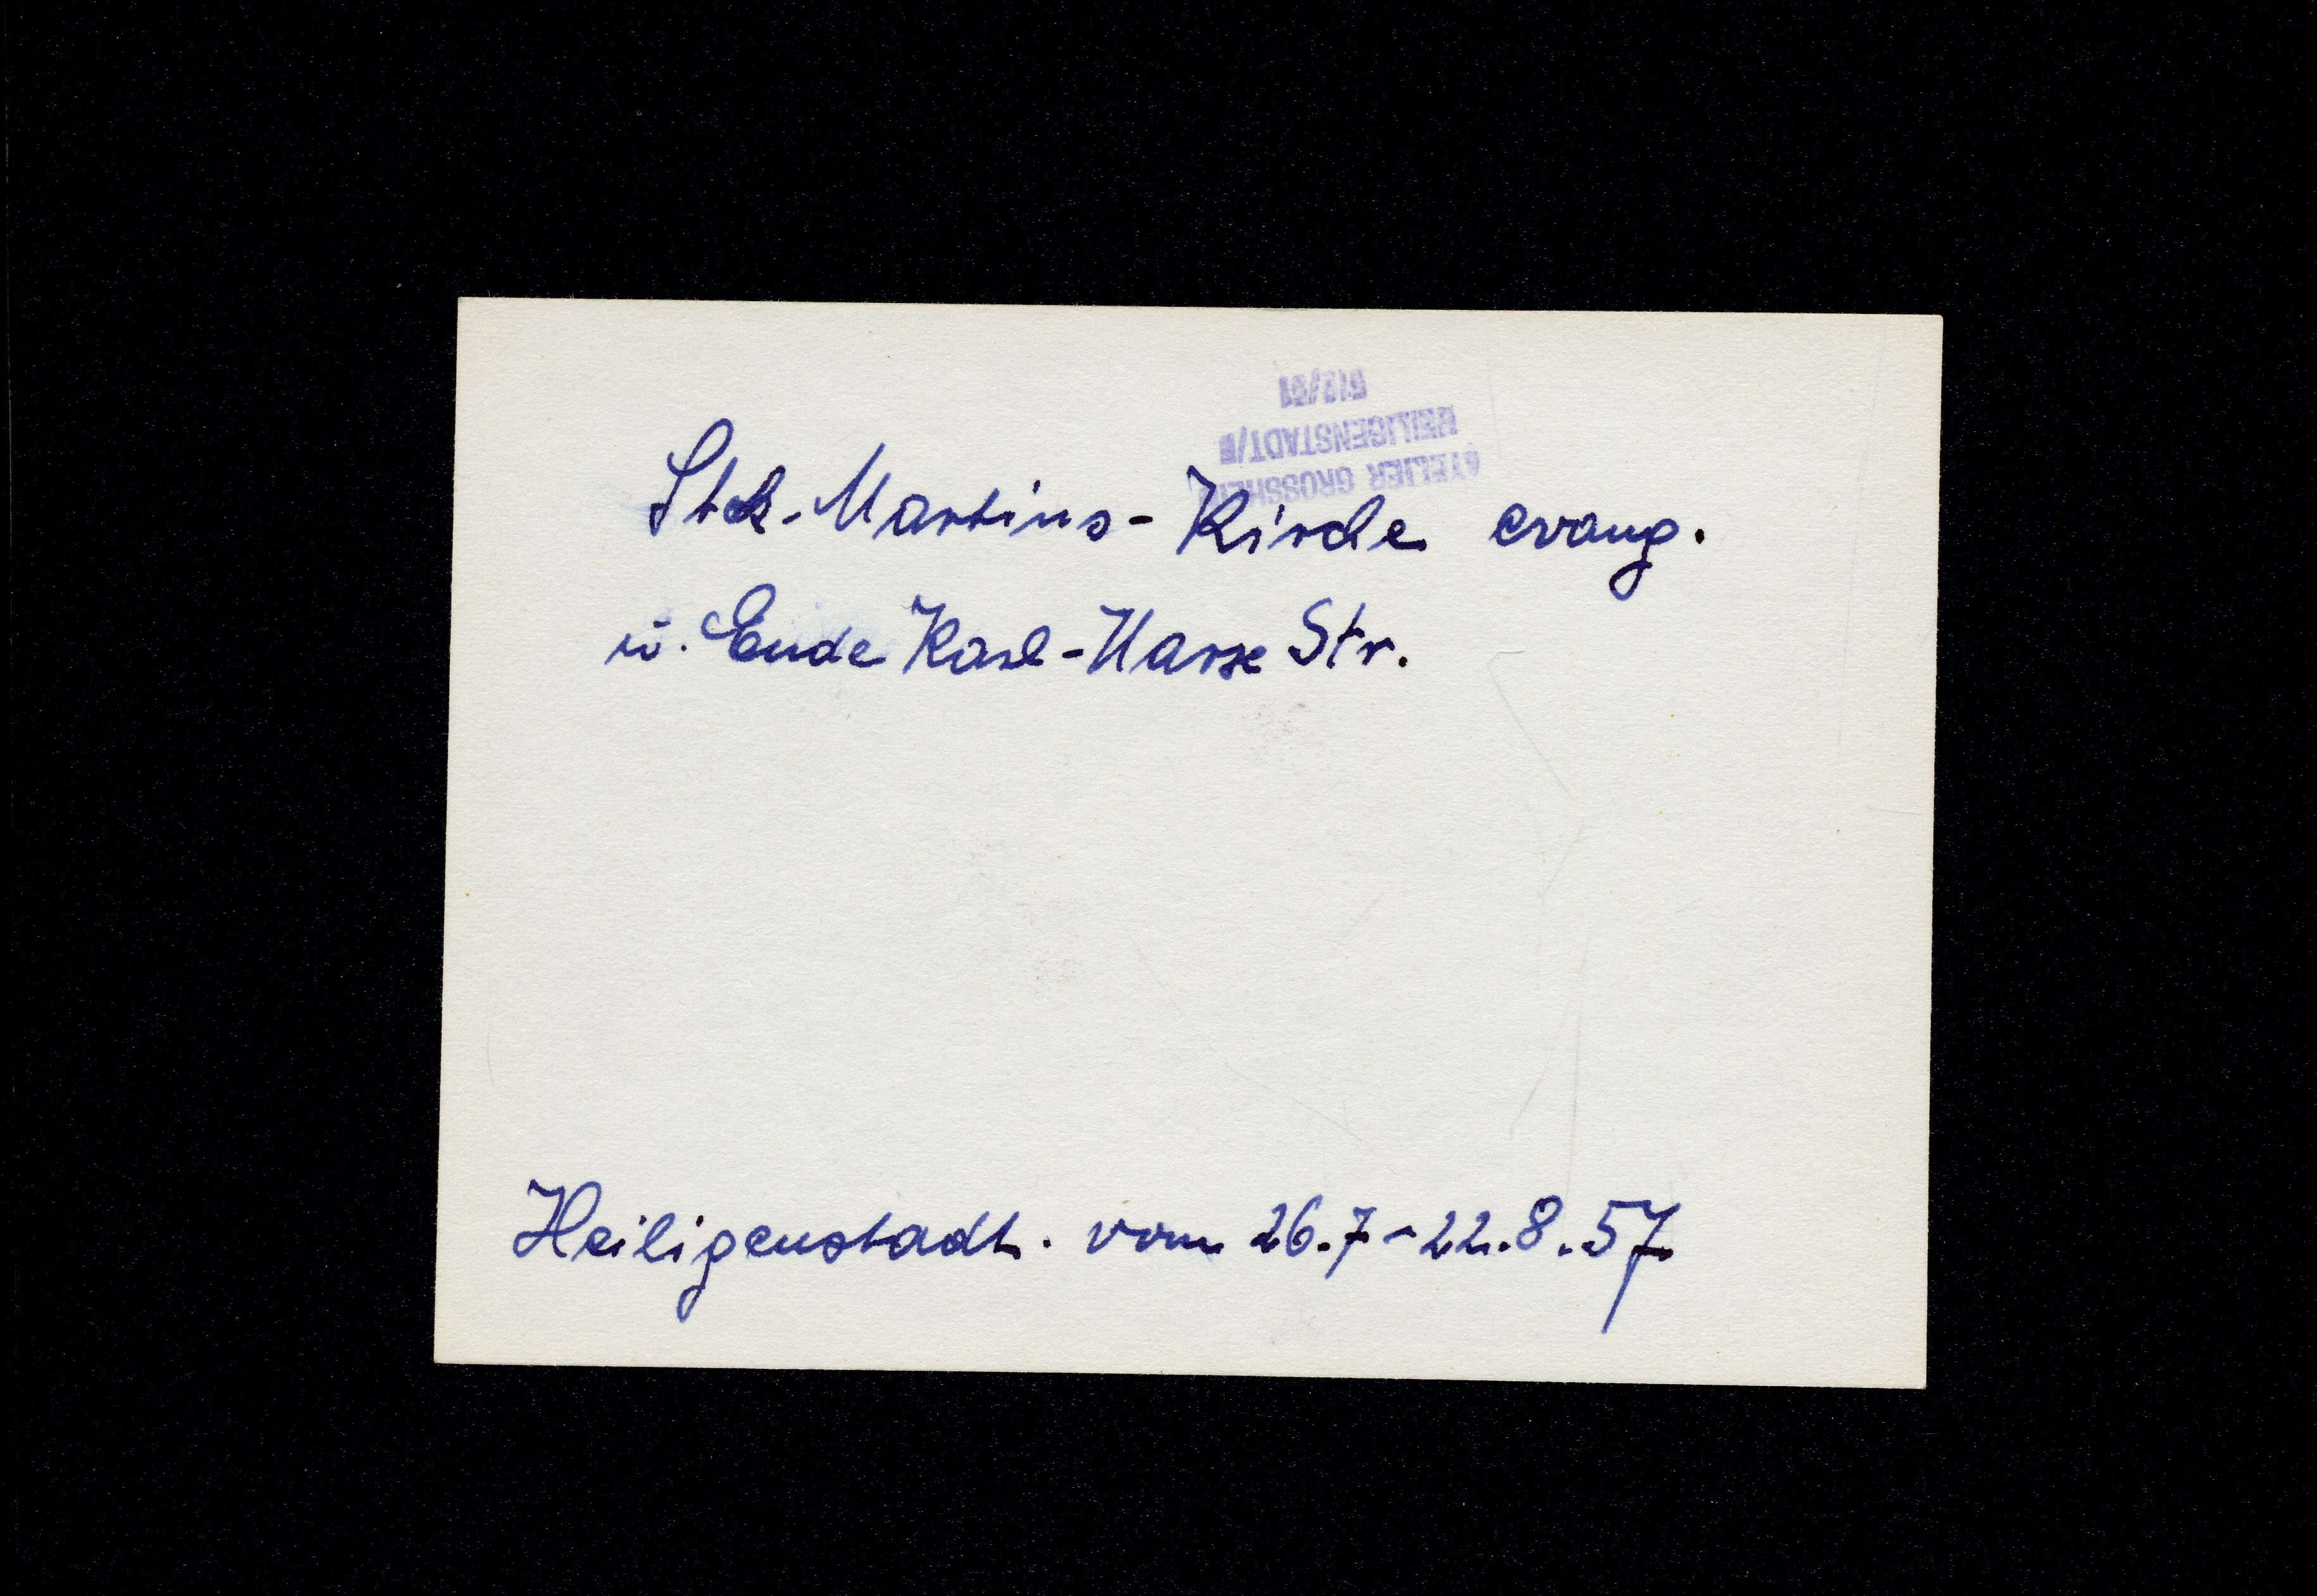 ATELIER GROSSHEIM
HEILIGENSTADT/E
St. Martins-Kirche evang.
u. Ende Karl-Marx Str.
Heiligenstadt. vom 26.7-22.8.57